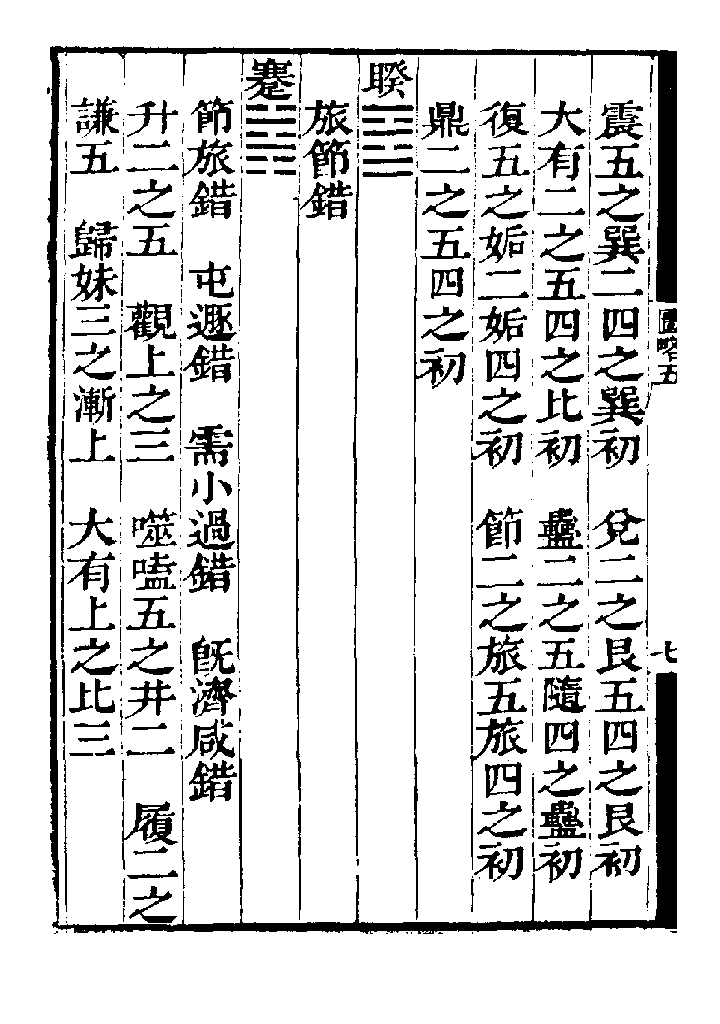 圖略五
七
震五之巽二四之巽初　兌二之艮五四之艮初
大有二之五四之比初　蠱二之五隨四之蠱初
復五之姤二姤四之初　節二之旅五旅四之初
鼎二之五四之初
睽䷥
旅節錯
蹇䷦
節旅錯　屯遯錯　需小過錯　旣濟咸錯
升二之五　觀上之三　噬嗑五之井二　履二之
謙五　歸妹三之漸上　大有上之比三